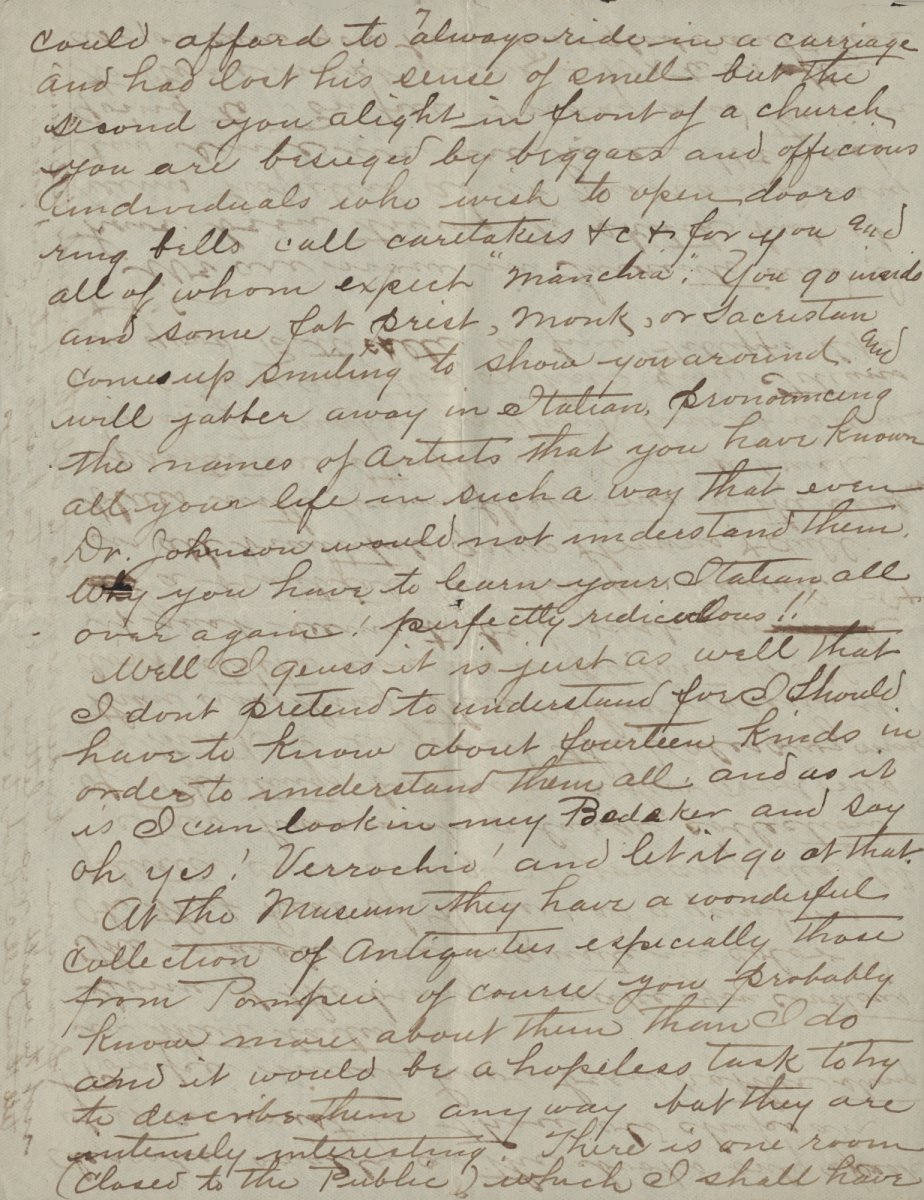 could afford to always ride in a carriage
and had lost his sense of smell but the
second you alight in front of a church
you are besieged by beggars and officious
individuals who wish to open doors
ring bells call caretakers &c &c for you and
all of whom expect "Manchia". You go inside
and some fat prist, monk, or Sacristan
comes up smiling to show you around and
will jabber away in Italian, pronouncing
the names of Artists that you have known
all your life in such a way that even
Dr. Johnson would not understand them.
Why you have to learn your Italian all
over again! perfectly ridiculous!!
Well I geuss it is just as well that
I dont pretend to understand for I should
have to know about fourteen kinds in
order to understand them all, and as it
is I can look in my Bedeker and say
oh yes! Verrochio! and let it go at that.
At the Museum they have a wonderful
collection of Antiquities especially those
from Pompei of course you probably
know more about them than I do
and it would be a hopeless task to try
to describe them any way but they are
intensely interesting. There is one room
(closed to the Public) which I shall have